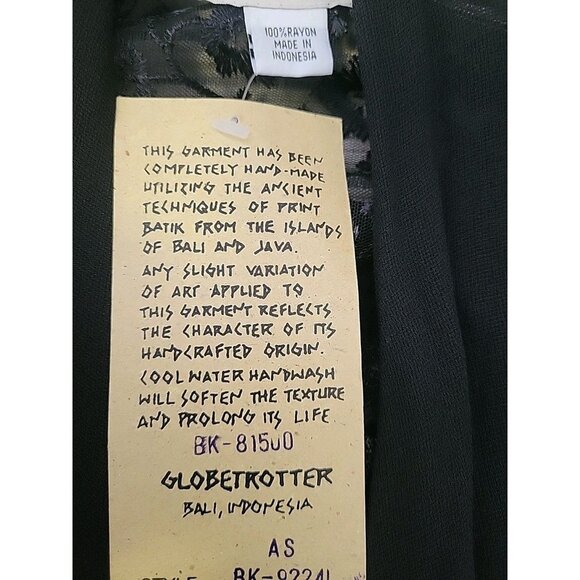 100% RAYON
MADE IN
INDONESIA
THIS GARMENT HAS BEEN
COMPLETELY HAND-MADE
UTILIZING THE ANCIENT
TECHNIQUES OF PRINT
BATIK FROM THE ISLANDS
OF BALI AND JAVA.
ANY SLIGHT VARIATION
OF ART APPLIED TO
THIS GARMENT REFLECTS
THE CHARACTER OF ITS
HANDCRAFTED ORIGIN.
COOL WATER HANDWASH
WILL SOFTEN THE TEXTURE
AND PROLONG ITS LIFE
BK-81500
GLOBETROTTER
BALI, INDONESIA
AS
STYLE